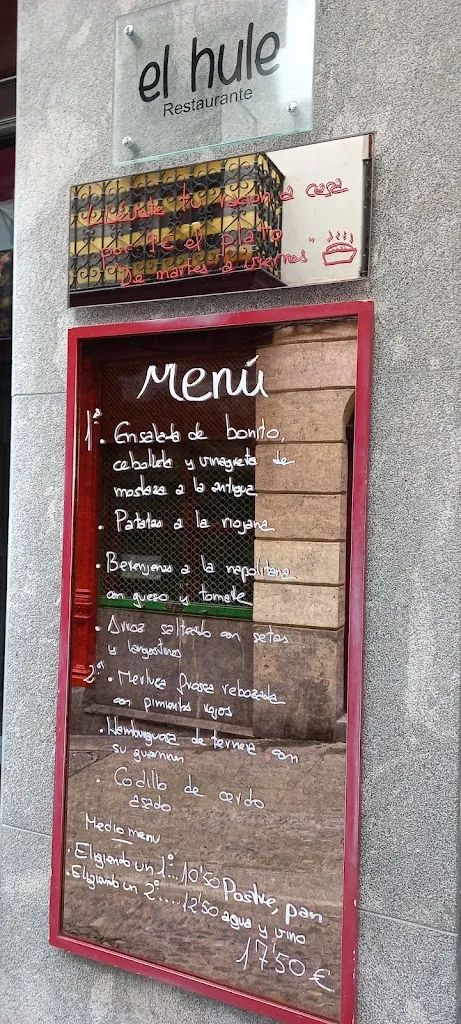 el hule
Restaurante
Llévate tu ración a casa
por 9€ el plato
"De martes a viernes"
Menú
1º. Ensalada de bonito,
cebolleta y vinagreta de
mostaza a la antigua
. Patatas a la riojana
. Berenjenas a la napolitana
con queso y tomate
. Arroz salteado con setas
y langostinos
2º. Merluza fresca rebozada
con pimientos rojos
. Hamburguesa de ternera con
su guarnicion
. Codillo de cerdo
asado
Medio menu
. Eligiendo un 1º... 10'50 Postre, pan
. Eligiendo un 2º..... 12'50 agua y vino
17'50 €